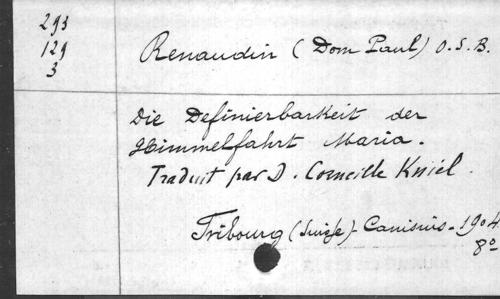 293
129
3
Renaudin (Dom Paul) O.S.B.
Die Definierbarkeit der
Himmelfahrt Maria.
Traduit par D. Corneille Kniel.
Fribourg (Suisse) - Canisius - 1904
8º